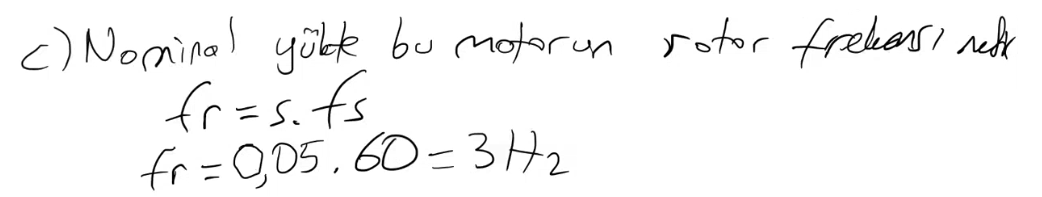 c) Nominal yükte bu motorun rotor frekansı nedir
fr = s. fs
fr = 0,05 . 60 = 3 Hz